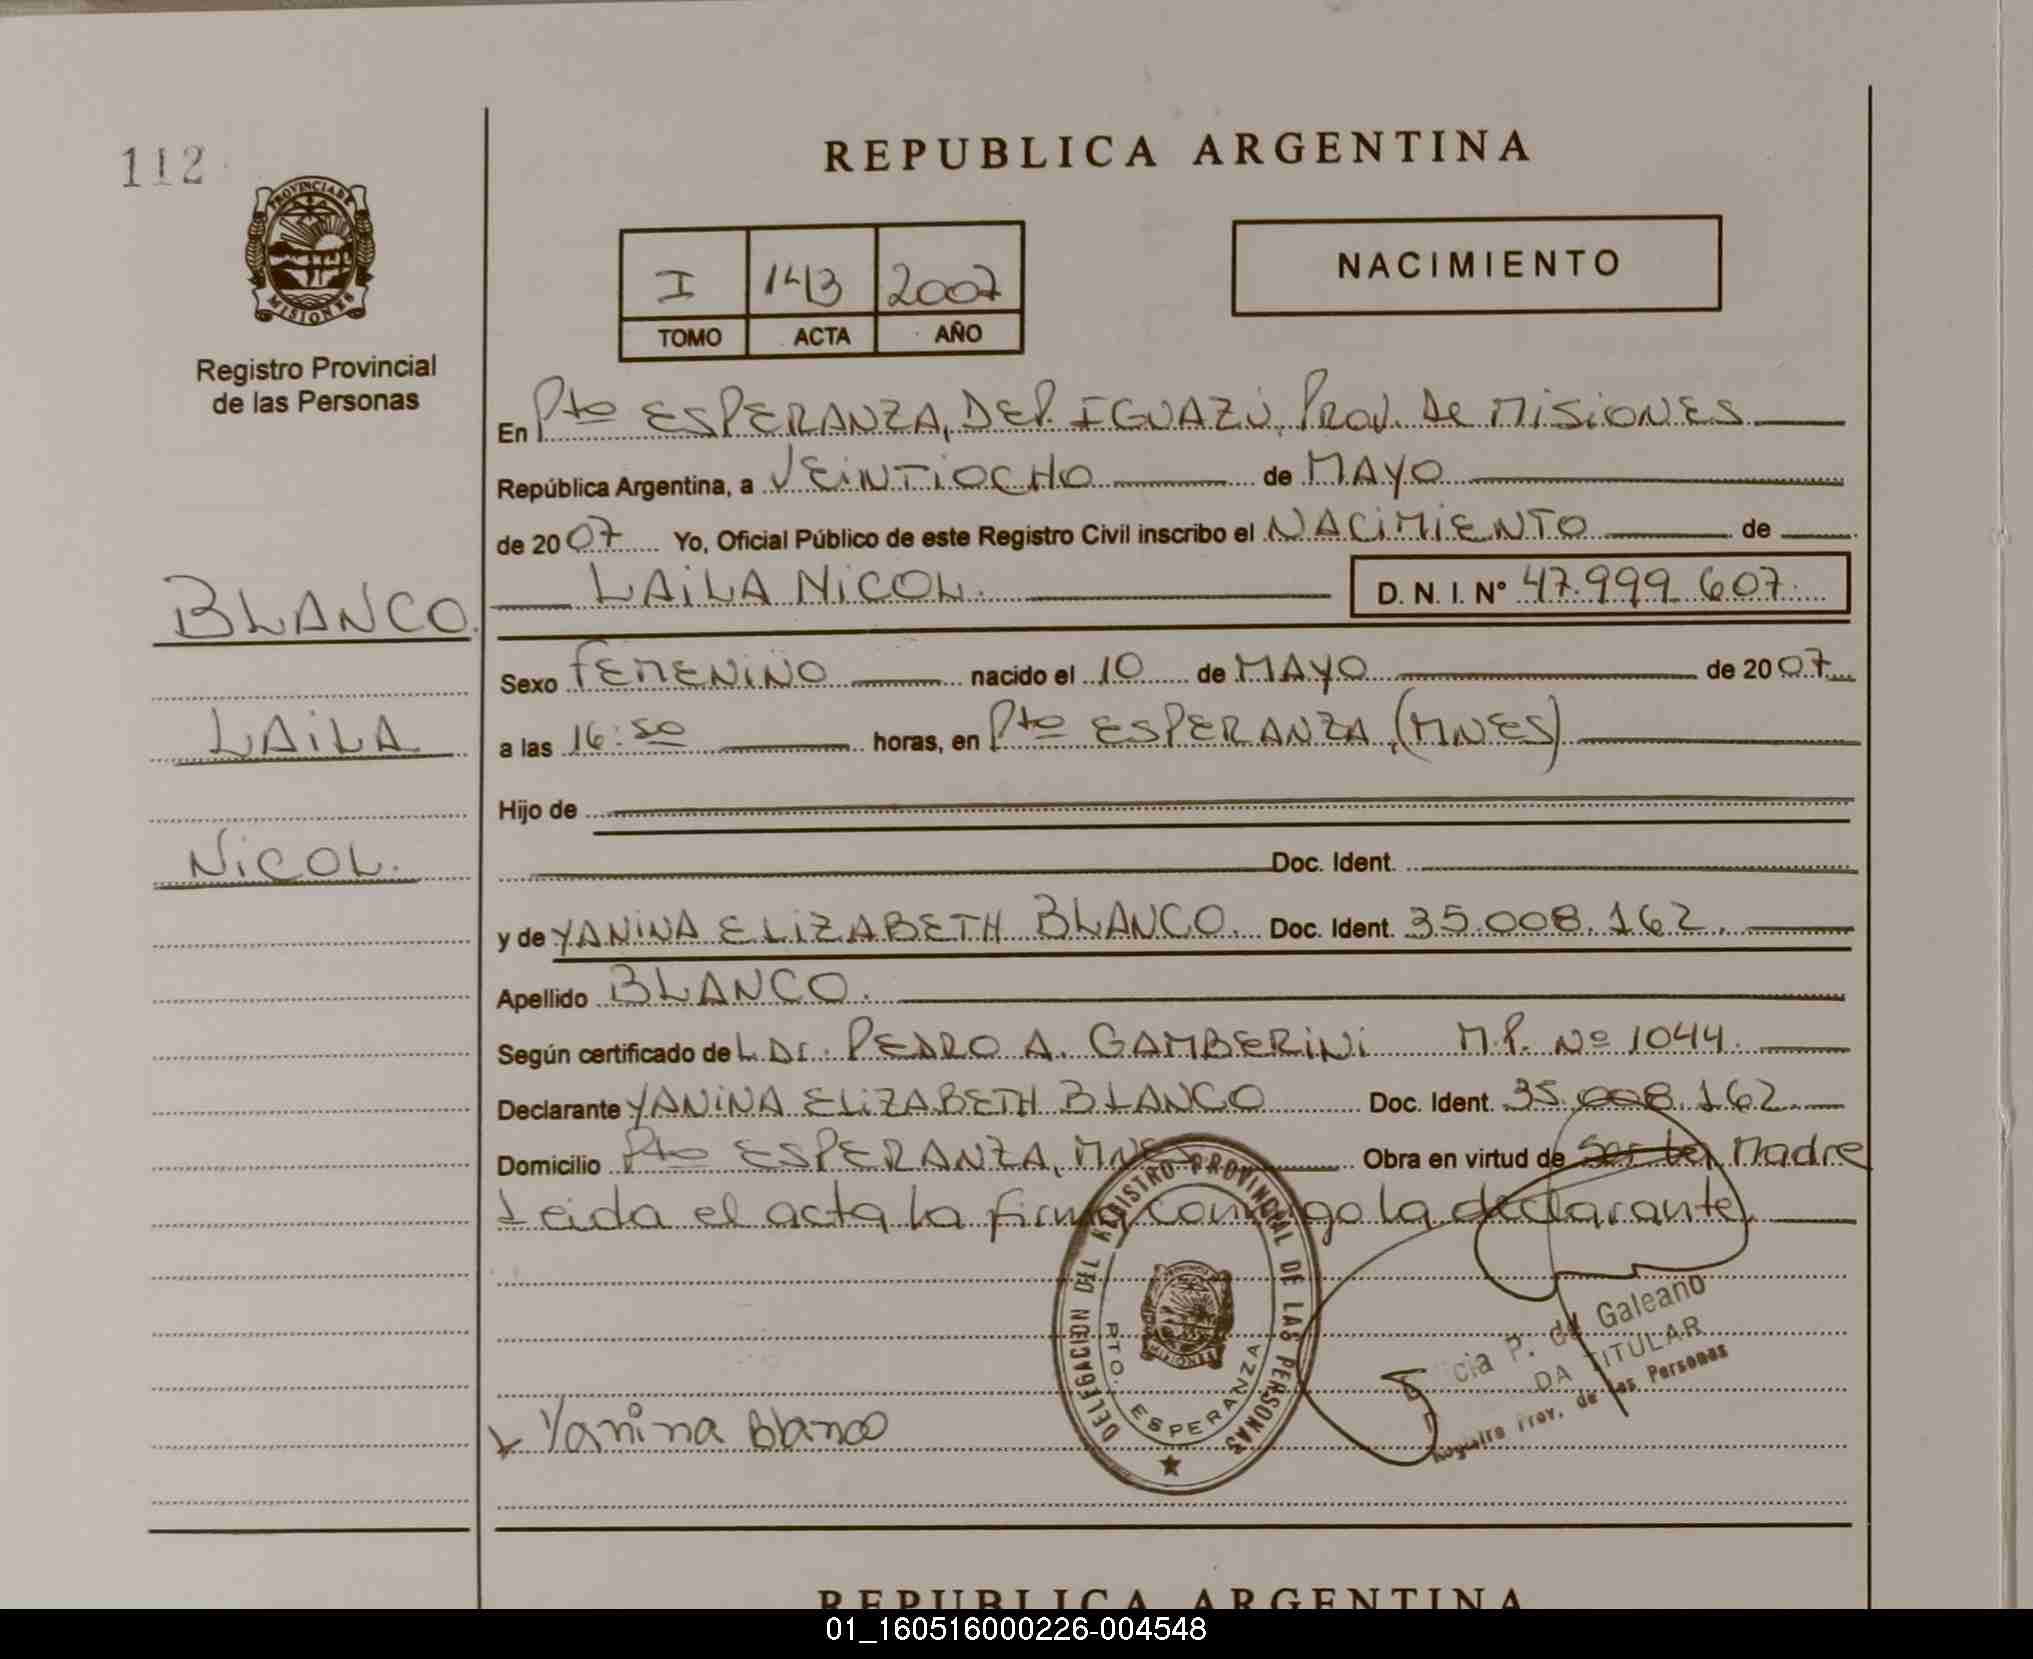 112
REPUBLICA ARGENTINA
PROVINCIA DE
MISIONES
Registro Provincial
de las Personas
I 143 2007
TOMO ACTA AÑO
NACIMIENTO
En Pto ESPERANZA, DEP. IGUAZÚ, Prov. De MISIONES
República Argentina, a VEINTIOCHO de MAYO
de 2007 Yo, Oficial Público de este Registro Civil inscribo el NACIMIENTO de
LAILA NICOL. D. N. I. Nº 47.999.607.
BLANCO.
LAILA
NICOL.
Sexo FEMENINO nacido el 10 de MAYO de 2007
a las 16:50 horas, en Pto ESPERANZA, (MNES)
Hijo de
Doc. Ident.
y de YANINA ELIZABETH BLANCO. Doc. Ident. 35.008.162.
Apellido BLANCO.
Según certificado de L. Dr. PEDRO A. GAMBERINI M.P. Nº 1044.
Declarante YANINA ELIZABETH BLANCO Doc. Ident. 35.008.162
Domicilio Pto ESPERANZA, MNES Obra en virtud de Ser la Madre
Leida el acta la firma conmigo la declarante
DELEGACION DEL REGISTRO PROVINCIAL DE LAS PERSONAS
PTO. ESPERANZA
P. de Galeano
TITULAR
Prov. de las Personas
Yanina Blanco
REPUBLICA ARGENTINA
01_160516000226-004548